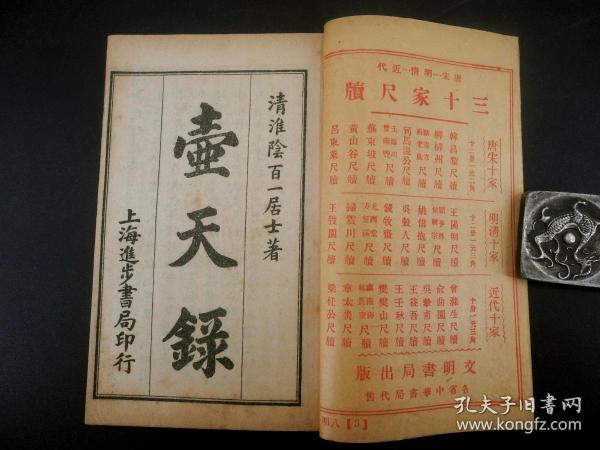 清淮陰百一居士著
壺天錄
上海進步書局印行
唐宋…明清…近代
三十家尺牘
唐宋十家
十二册一元二角
韓昌黎尺牘
柳柳州尺牘
司馬溫公尺牘
蘇東坡尺牘
黃山谷尺牘
呂東萊尺牘
明清十家
王陽明尺牘
姚惜抱尺牘
吳穀人尺牘
錢牧齋尺牘
歸震川尺牘
近代十家
曾滌生尺牘
俞曲園尺牘
吳摯甫尺牘
王益吾尺牘
王壬秋尺牘
樊樊山尺牘
章太炎尺牘
梁任公尺牘
文明書局出版
各省中華書局代售
孔夫子旧书网
www.kongfz.com